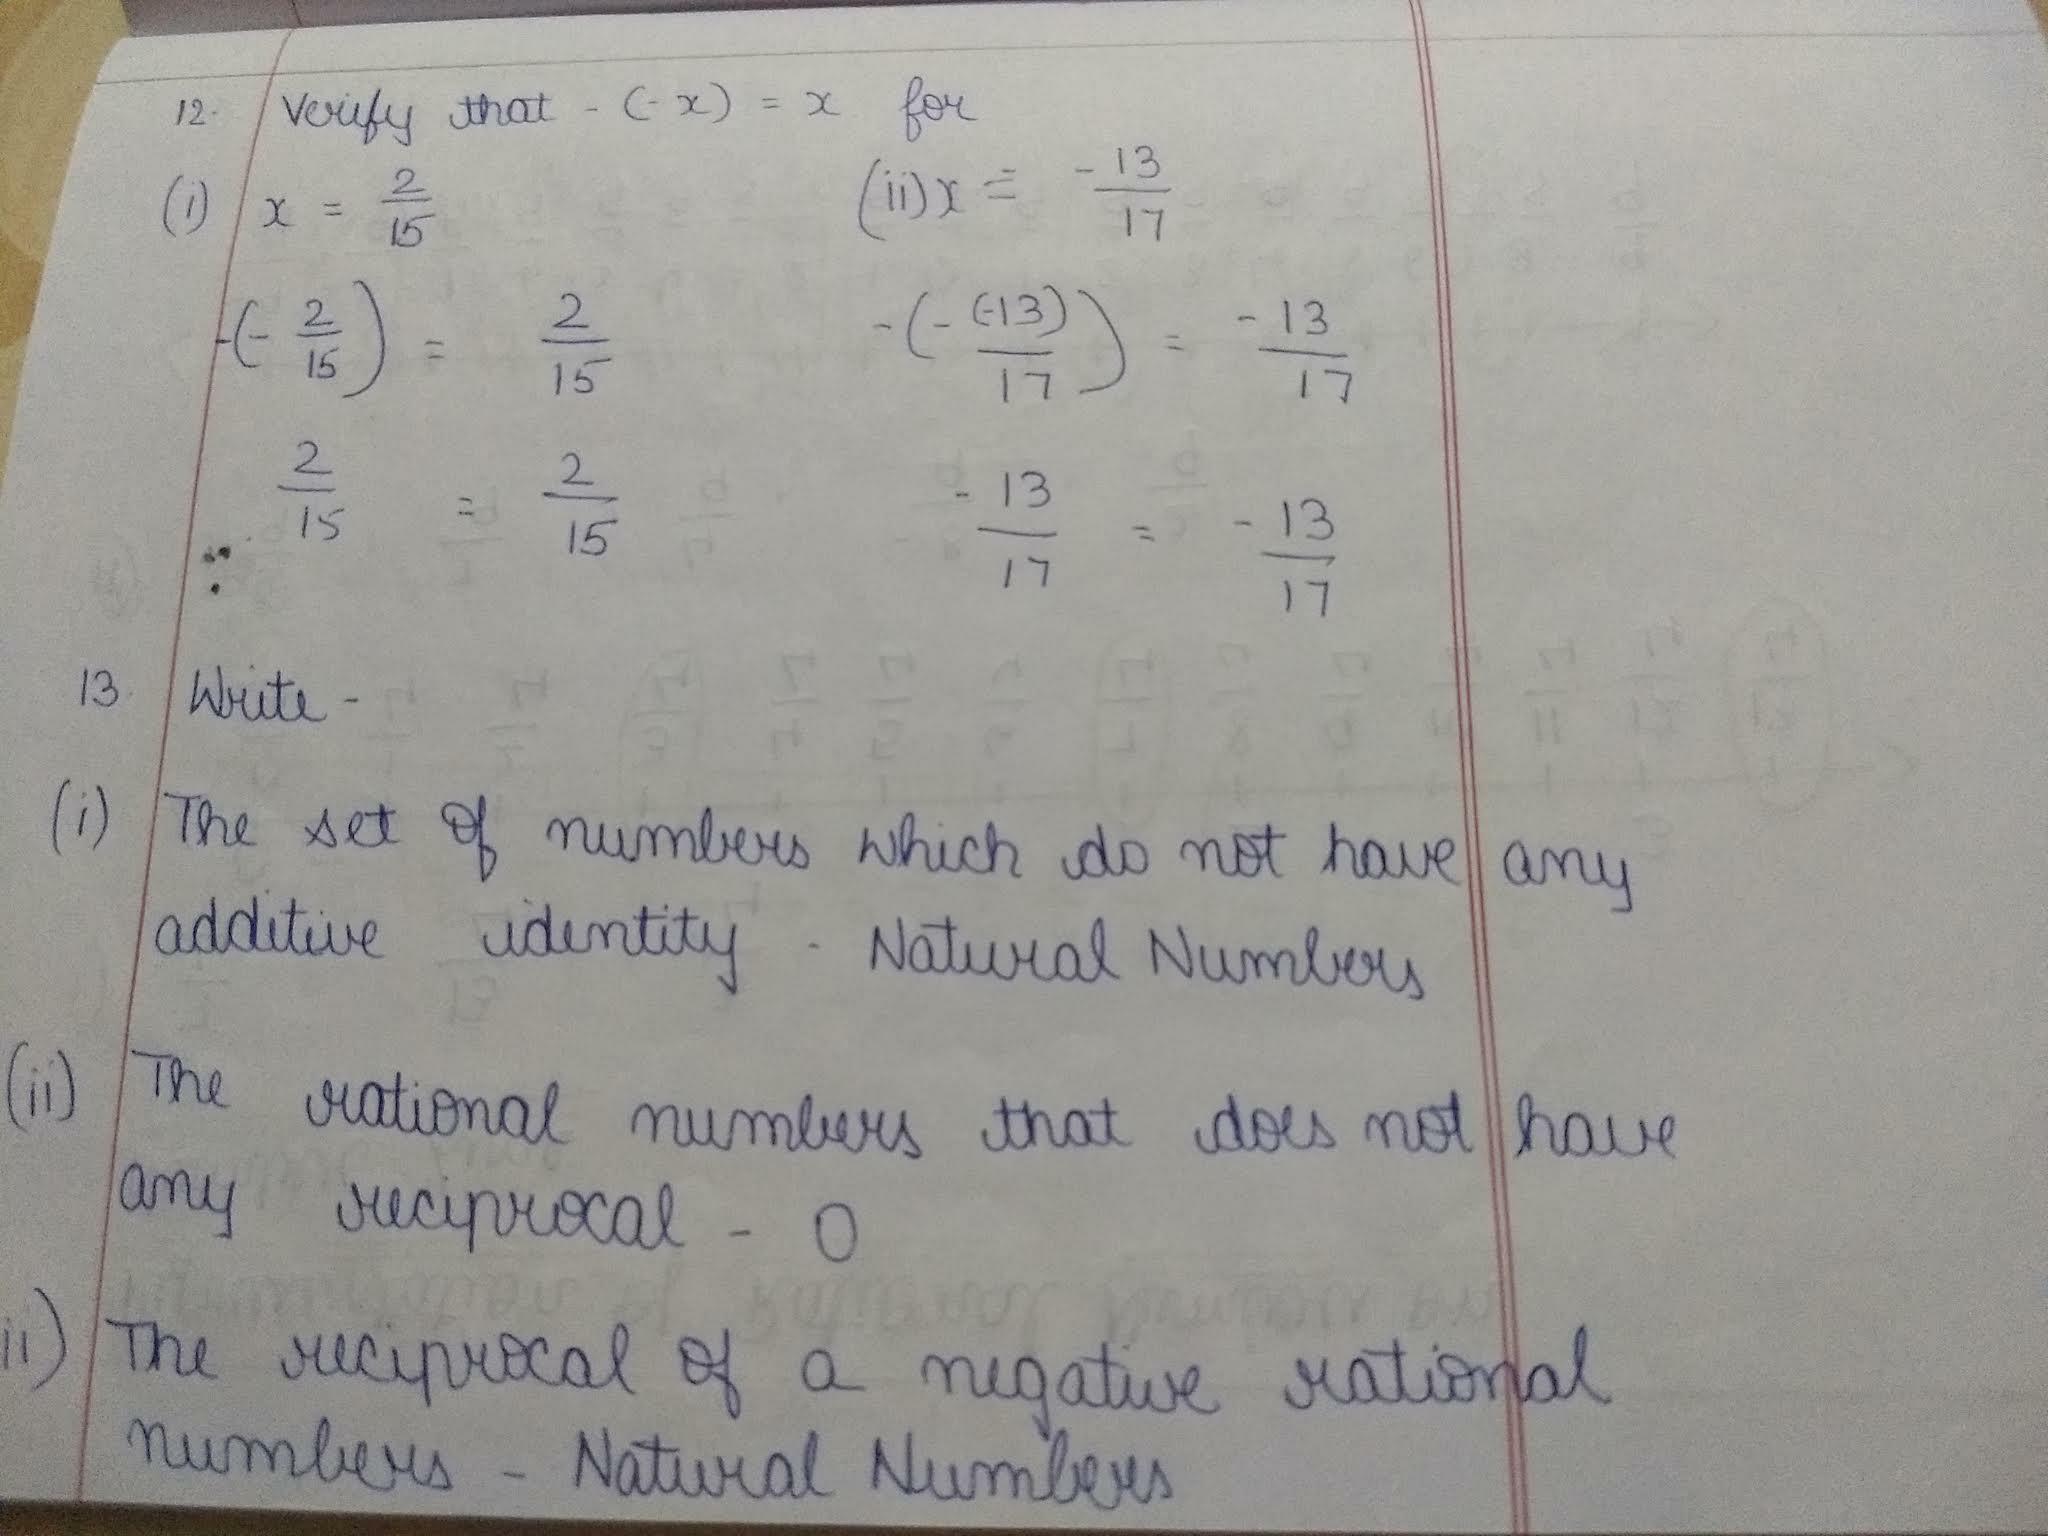 12. Verify that - (-x) = x for
(i) x = 2/15 (ii) x = -13/17
-(-2/15) = 2/15 -(-(-13)/17) = -13/17
2/15 = 2/15 -13/17 = -13/17
13. Write -
(i) The set of numbers which do not have any
additive identity - Natural Numbers
(ii) The rational numbers that does not have
any reciprocal - 0
ii) The reciprocal of a negative rational
numbers - Natural Numbers